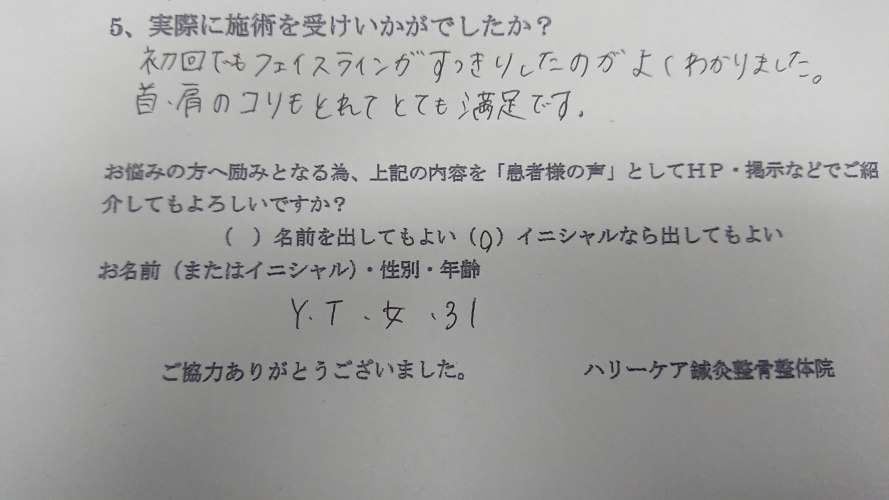 5、実際に施術を受けいかがでしたか？
初回でもフェイスラインがすっきりしたのがよくわかりました。
首・肩のコリもとれてとても満足です.
お悩みの方へ励みとなる為、上記の内容を「患者様の声」としてＨＰ・掲示などでご紹
介してもよろしいですか？
（　）名前を出してもよい（○）イニシャルなら出してもよい
お名前（またはイニシャル）・性別・年齢
Y.T、女、31
ご協力ありがとうございました。　ハリーケア鍼灸整骨整体院